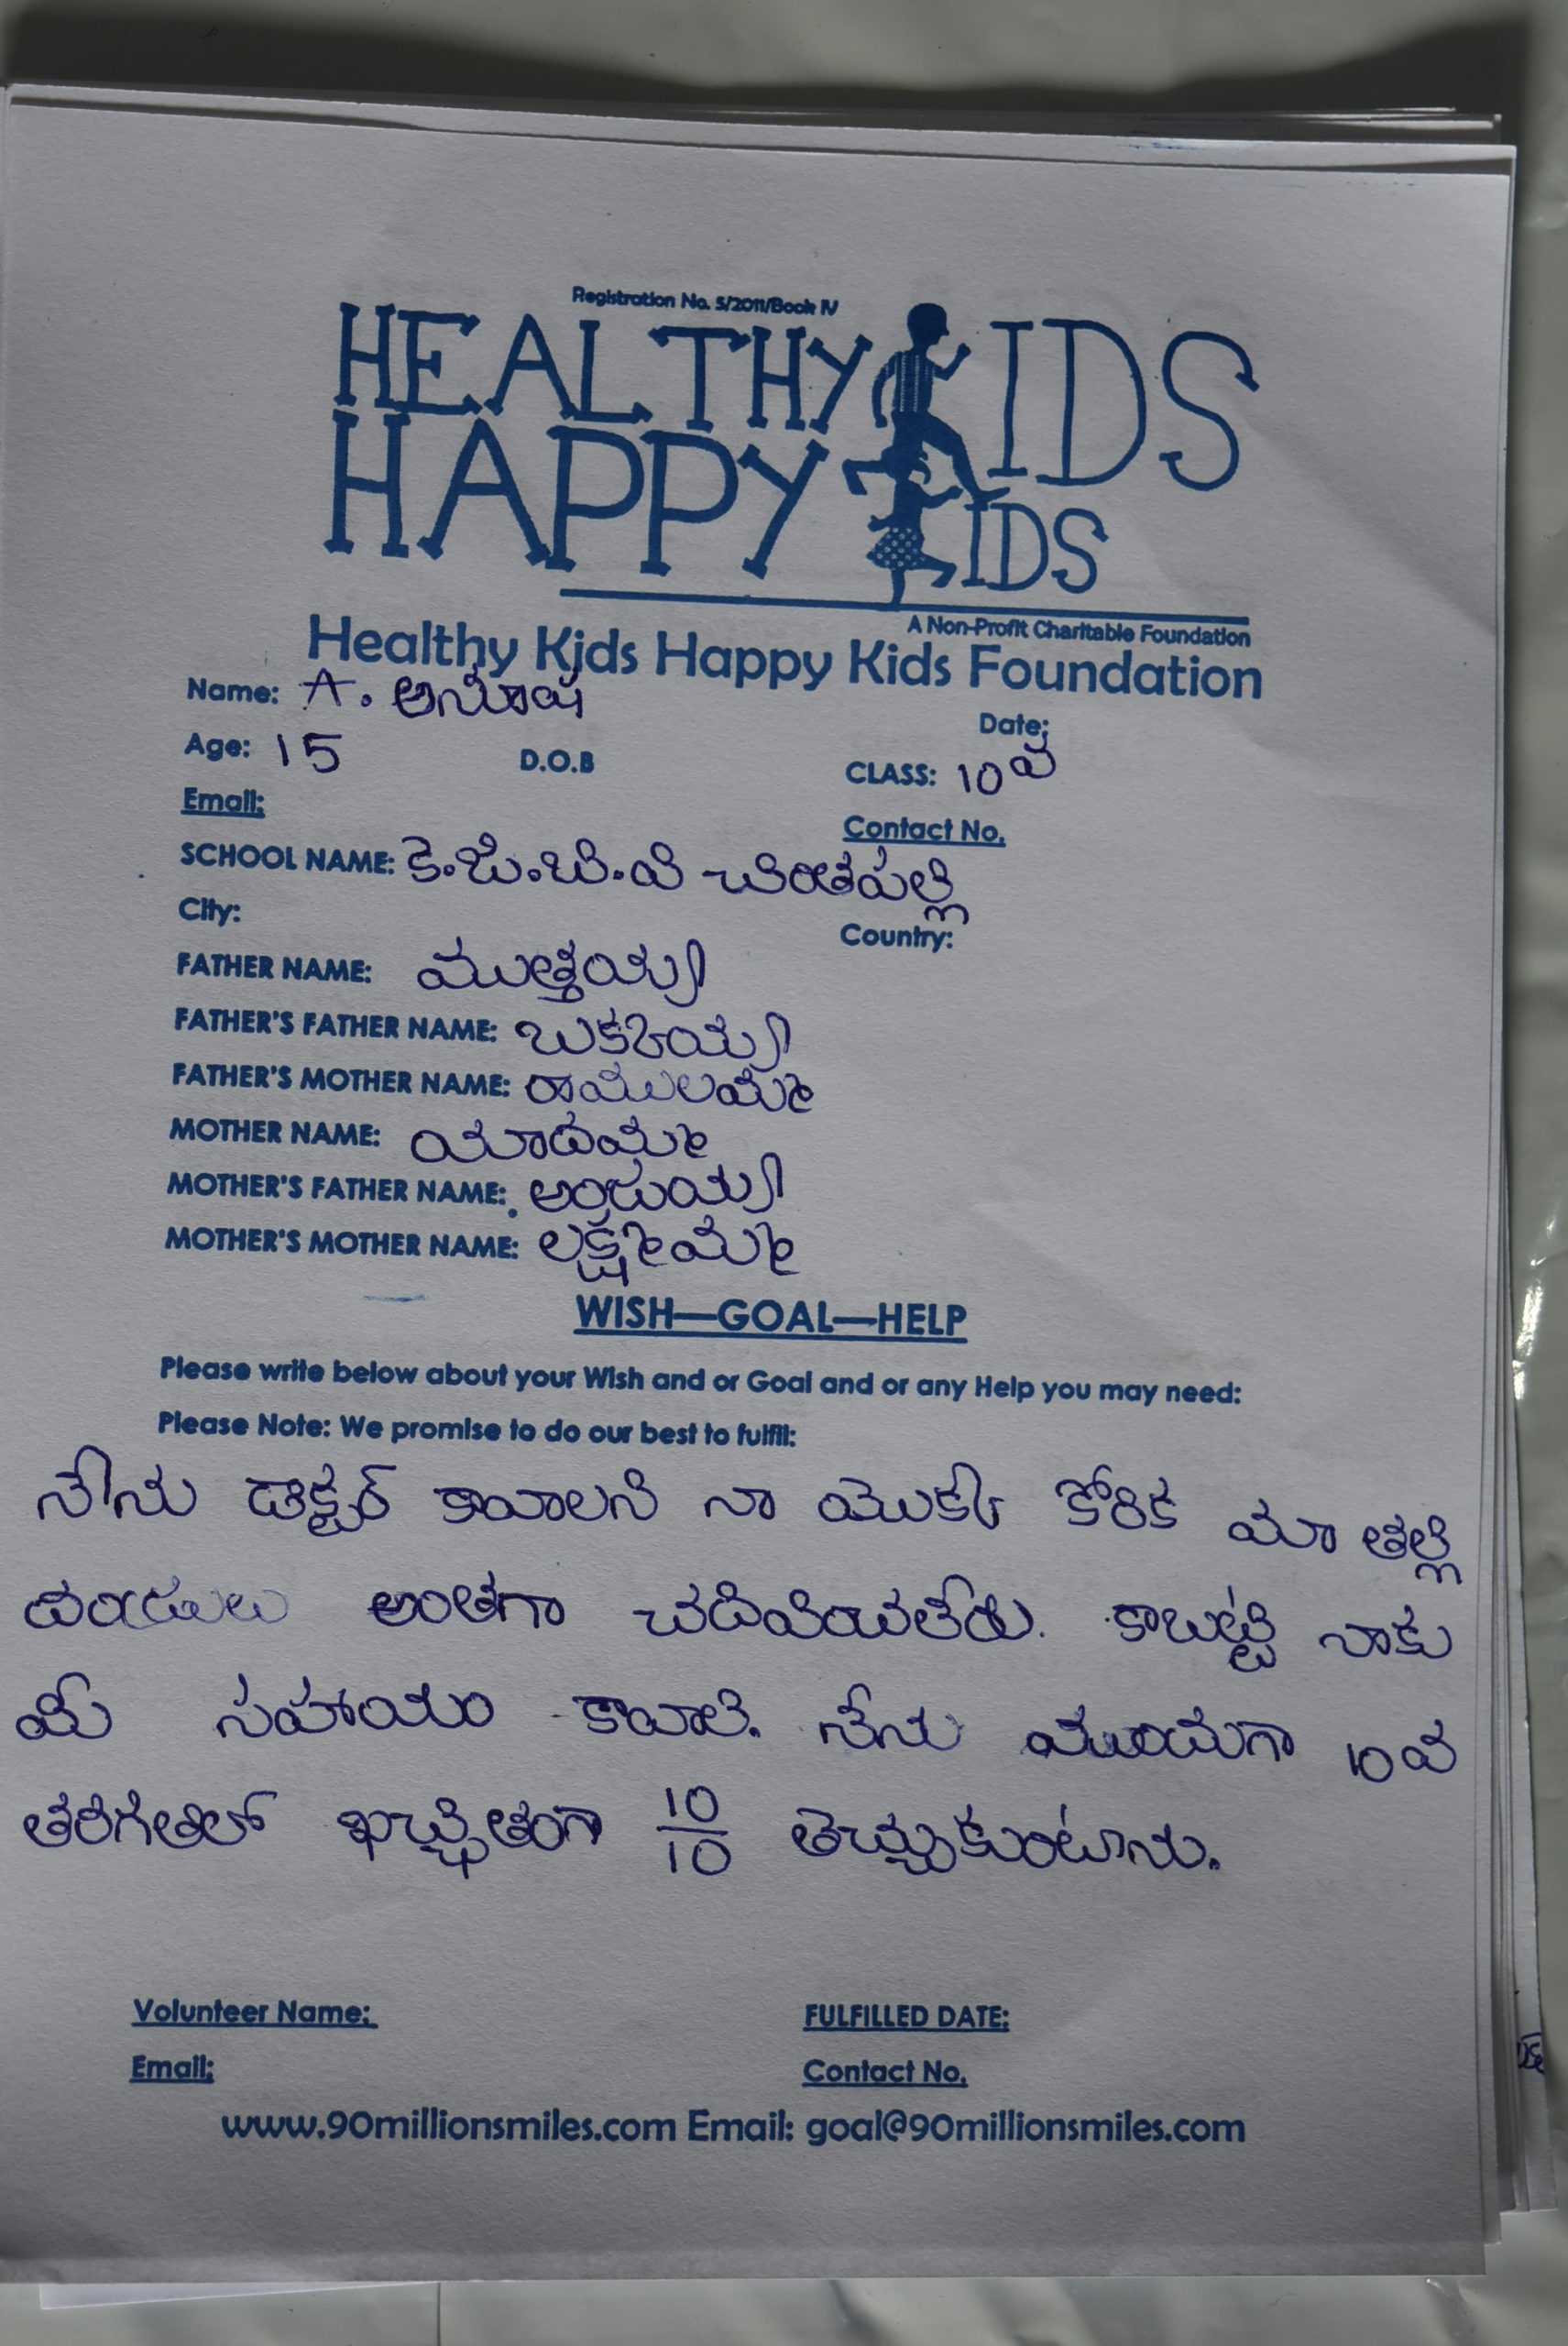 Registration No. 5/2011/Book IV
HEALTHY KIDS
HAPPY KIDS
A Non-Profit Charitable Foundation
Healthy Kids Happy Kids Foundation
Name: A. అనూష
Date:
Age: 15 D.O.B CLASS: 10వ
Email: Contact No.
SCHOOL NAME: కె.జి.బి.వి చింతపల్లి
City: Country:
FATHER NAME: ముత్తయ్య
FATHER'S FATHER NAME: బుక్కయ్య
FATHER'S MOTHER NAME: రాములమ్మ
MOTHER NAME: యాదమ్మ
MOTHER'S FATHER NAME: అంజయ్య
MOTHER'S MOTHER NAME: లక్ష్మమ్మ
WISH—GOAL—HELP
Please write below about your Wish and or Goal and or any Help you may need:
Please Note: We promise to do our best to fulfil:
నేను డాక్టర్ కావాలని నా యొక్క కోరిక మా తల్లి
దండ్రులు అంతగా చదివించలేరు. కాబట్టి నాకు
మీ సహాయం కావాలి. నేను ముందుగా 10వ
తరగతిలో ఖచ్చితంగా 10/10 తెచ్చుకుంటాను.
Volunteer Name: FULFILLED DATE:
Email: Contact No.
www.90millionsmiles.com Email: goal@90millionsmiles.com